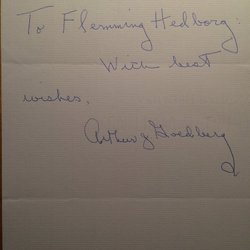 To Flemming Hedborg:
With best
wishes,
Arthur J Goldberg